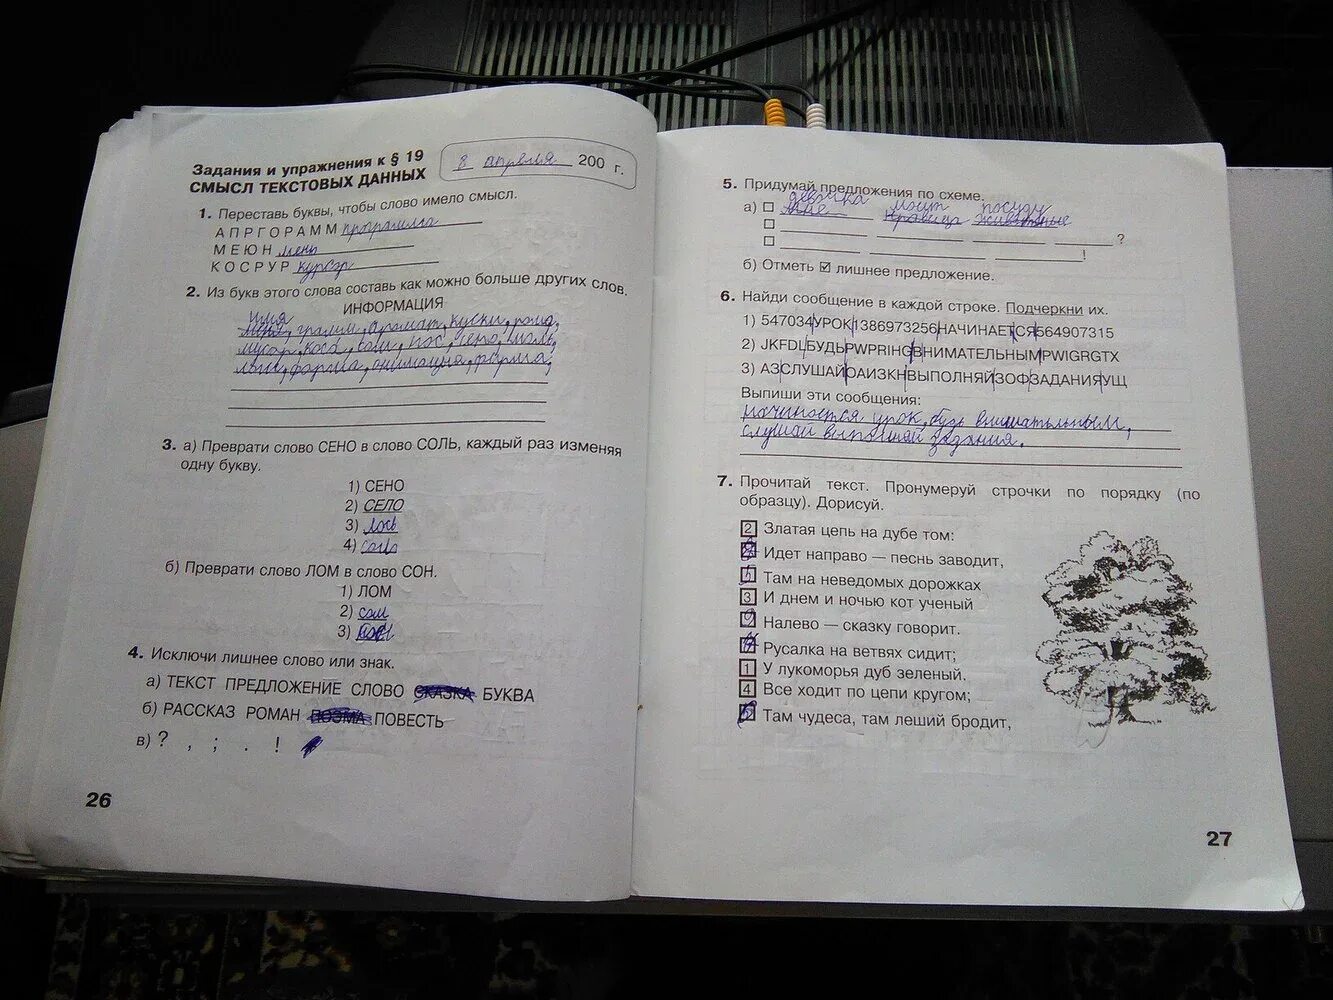 Задания и упражнения к § 19
СМЫСЛ ТЕКСТОВЫХ ДАННЫХ
8 апреля 200 г.
1. Переставь буквы, чтобы слово имело смысл.
АПРГОРАММ программа
МЕЮН
КОСРУР курсор
2. Из букв этого слова составь как можно больше других слов.
ИНФОРМАЦИЯ
имя
грамм, аромат, куски, роща,
мусор, коса, сом, нос, сено, моль,
форма, анимация, форма,
3. а) Преврати слово СЕНО в слово СОЛЬ, каждый раз изменяя
одну букву.
1) СЕНО
2) СЕЛО
3) лось
4) соль
б) Преврати слово ЛОМ в слово СОН.
1) ЛОМ
2) сом
3)
4. Исключи лишнее слово или знак.
а) ТЕКСТ ПРЕДЛОЖЕНИЕ СЛОВО СКАЗКА БУКВА
б) РАССКАЗ РОМАН ПОЭМА ПОВЕСТЬ
в) ? , ; . !
26
5. Придумай предложения по схеме.
девочка моют посуду
а) мне нравица животные
?
!
б) Отметь ☑ лишнее предложение.
6. Найди сообщение в каждой строке. Подчеркни их.
1) 547034УРОК1386973256НАЧИНАЕТСЯ564907315
2) JKFDLБУДЬPWPRIHGВНИМАТЕЛЬНЫМPWIGRGTX
3) АЗСЛУШАЙОАИЗКНВЫПОЛНЯЙЗОФЗАДАНИЯУЩ
Выпиши эти сообщения:
начинается урок, будь внимательным,
слушай выполняй задания.
7. Прочитай текст. Пронумеруй строчки по порядку (по
образцу). Дорисуй.
2 Златая цепь на дубе том:
Идет направо — песнь заводит,
Там на неведомых дорожках
3 И днем и ночью кот ученый
9 Налево — сказку говорит.
Русалка на ветвях сидит;
1 У лукоморья дуб зеленый.
4 Все ходит по цепи кругом;
Там чудеса, там леший бродит,
27